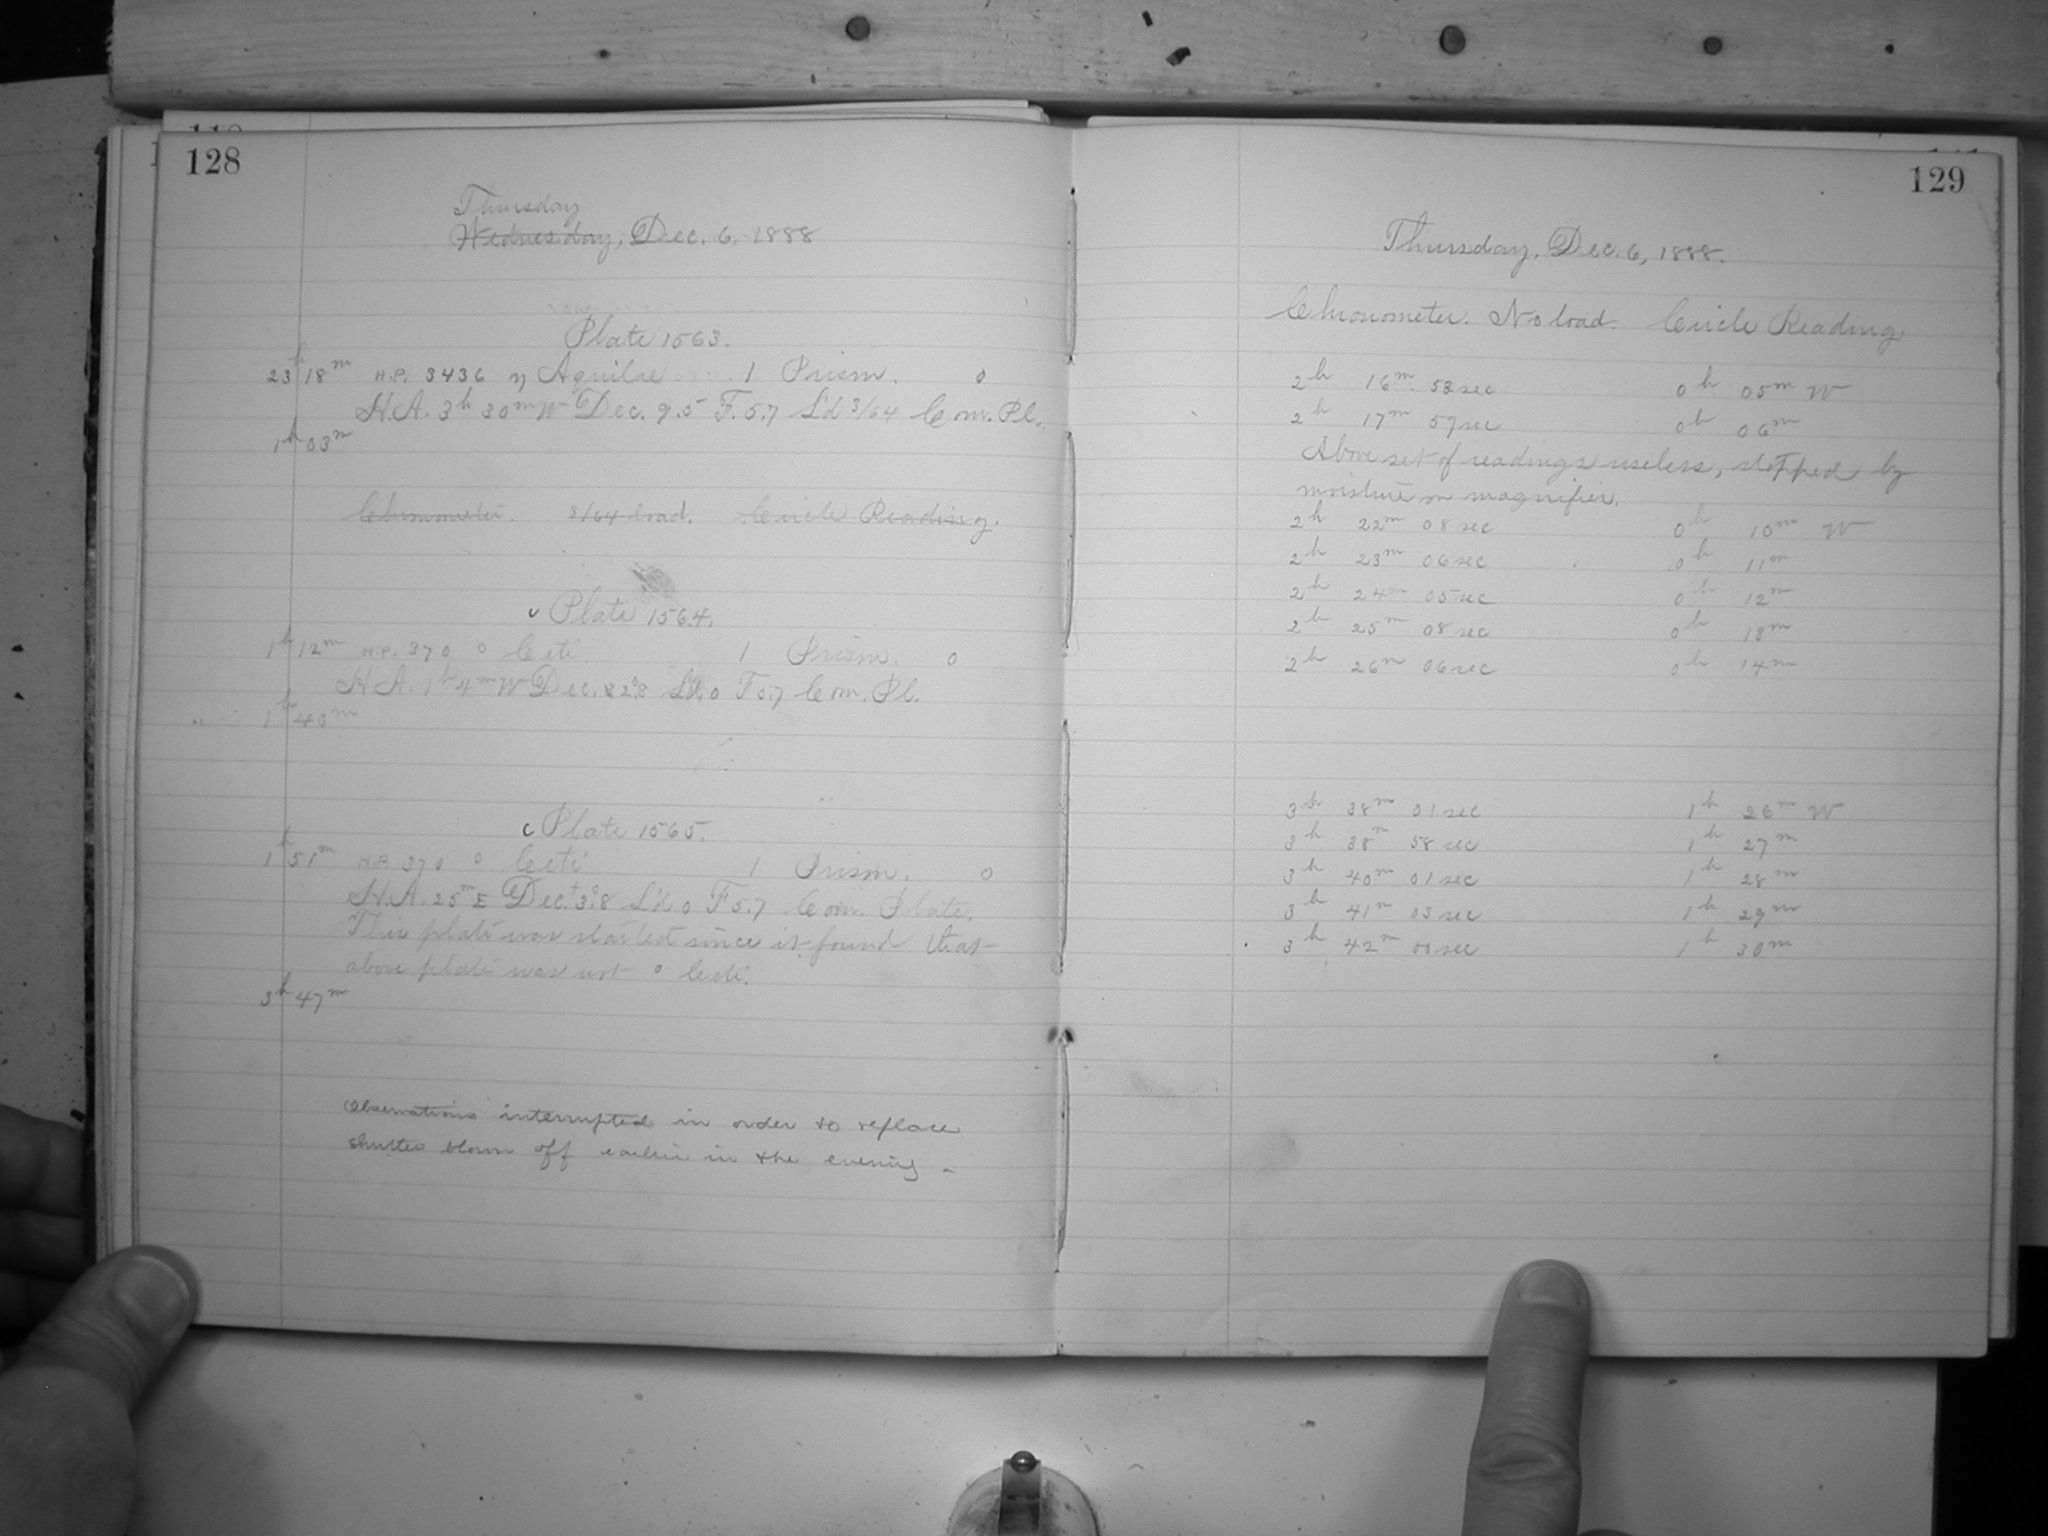 128
Thursday
Wednesday, Dec. 6, 1888
Plate 1563.
23h 18m H.P. 3436 η Aquilae 1 Prism. 0
H.A. 3h 30m W Dec. 9.5 F. 5.7 L'd 3/64 Com. Pl.
1h 03m
Chronometer. 3/64 load. Circle Reading.
v Plate 1564.
1h 12m H.P. 370 o Ceti 1 Prism. 0
H.A. 1h 4m W Dec. 82°.8 L'd 0 F 5.7 Com. Pl.
1h 40m
c Plate 1565.
1h 51m H.P. 370 o Ceti 1 Prism. 0
H.A. 25m E Dec. +3°.8 L'd 0 F 5.7 Com. Plate.
This plate was started since it found that
above plate was not o Ceti.
3h 47m
Observations interrupted in order to replace
shutter blown off earlier in the evening -
129
Thursday, Dec. 6, 1888.
Chronometer. No load. Circle Reading
2h 16m 58sec 0h 05m W
2h 17m 57sec 0h 06m
Above set of readings useless, stopped by
moisture on magnifier.
2h 22m 08sec 0h 10m W
2h 23m 06sec 0h 11m
2h 24m 05sec 0h 12m
2h 25m 08sec 0h 13m
2h 26m 06sec 0h 14m
3h 38m 01sec 1h 26m W
3h 38m 58sec 1h 27m
3h 40m 01sec 1h 28m
3h 41m 03sec 1h 29m
3h 42m 00sec 1h 30m